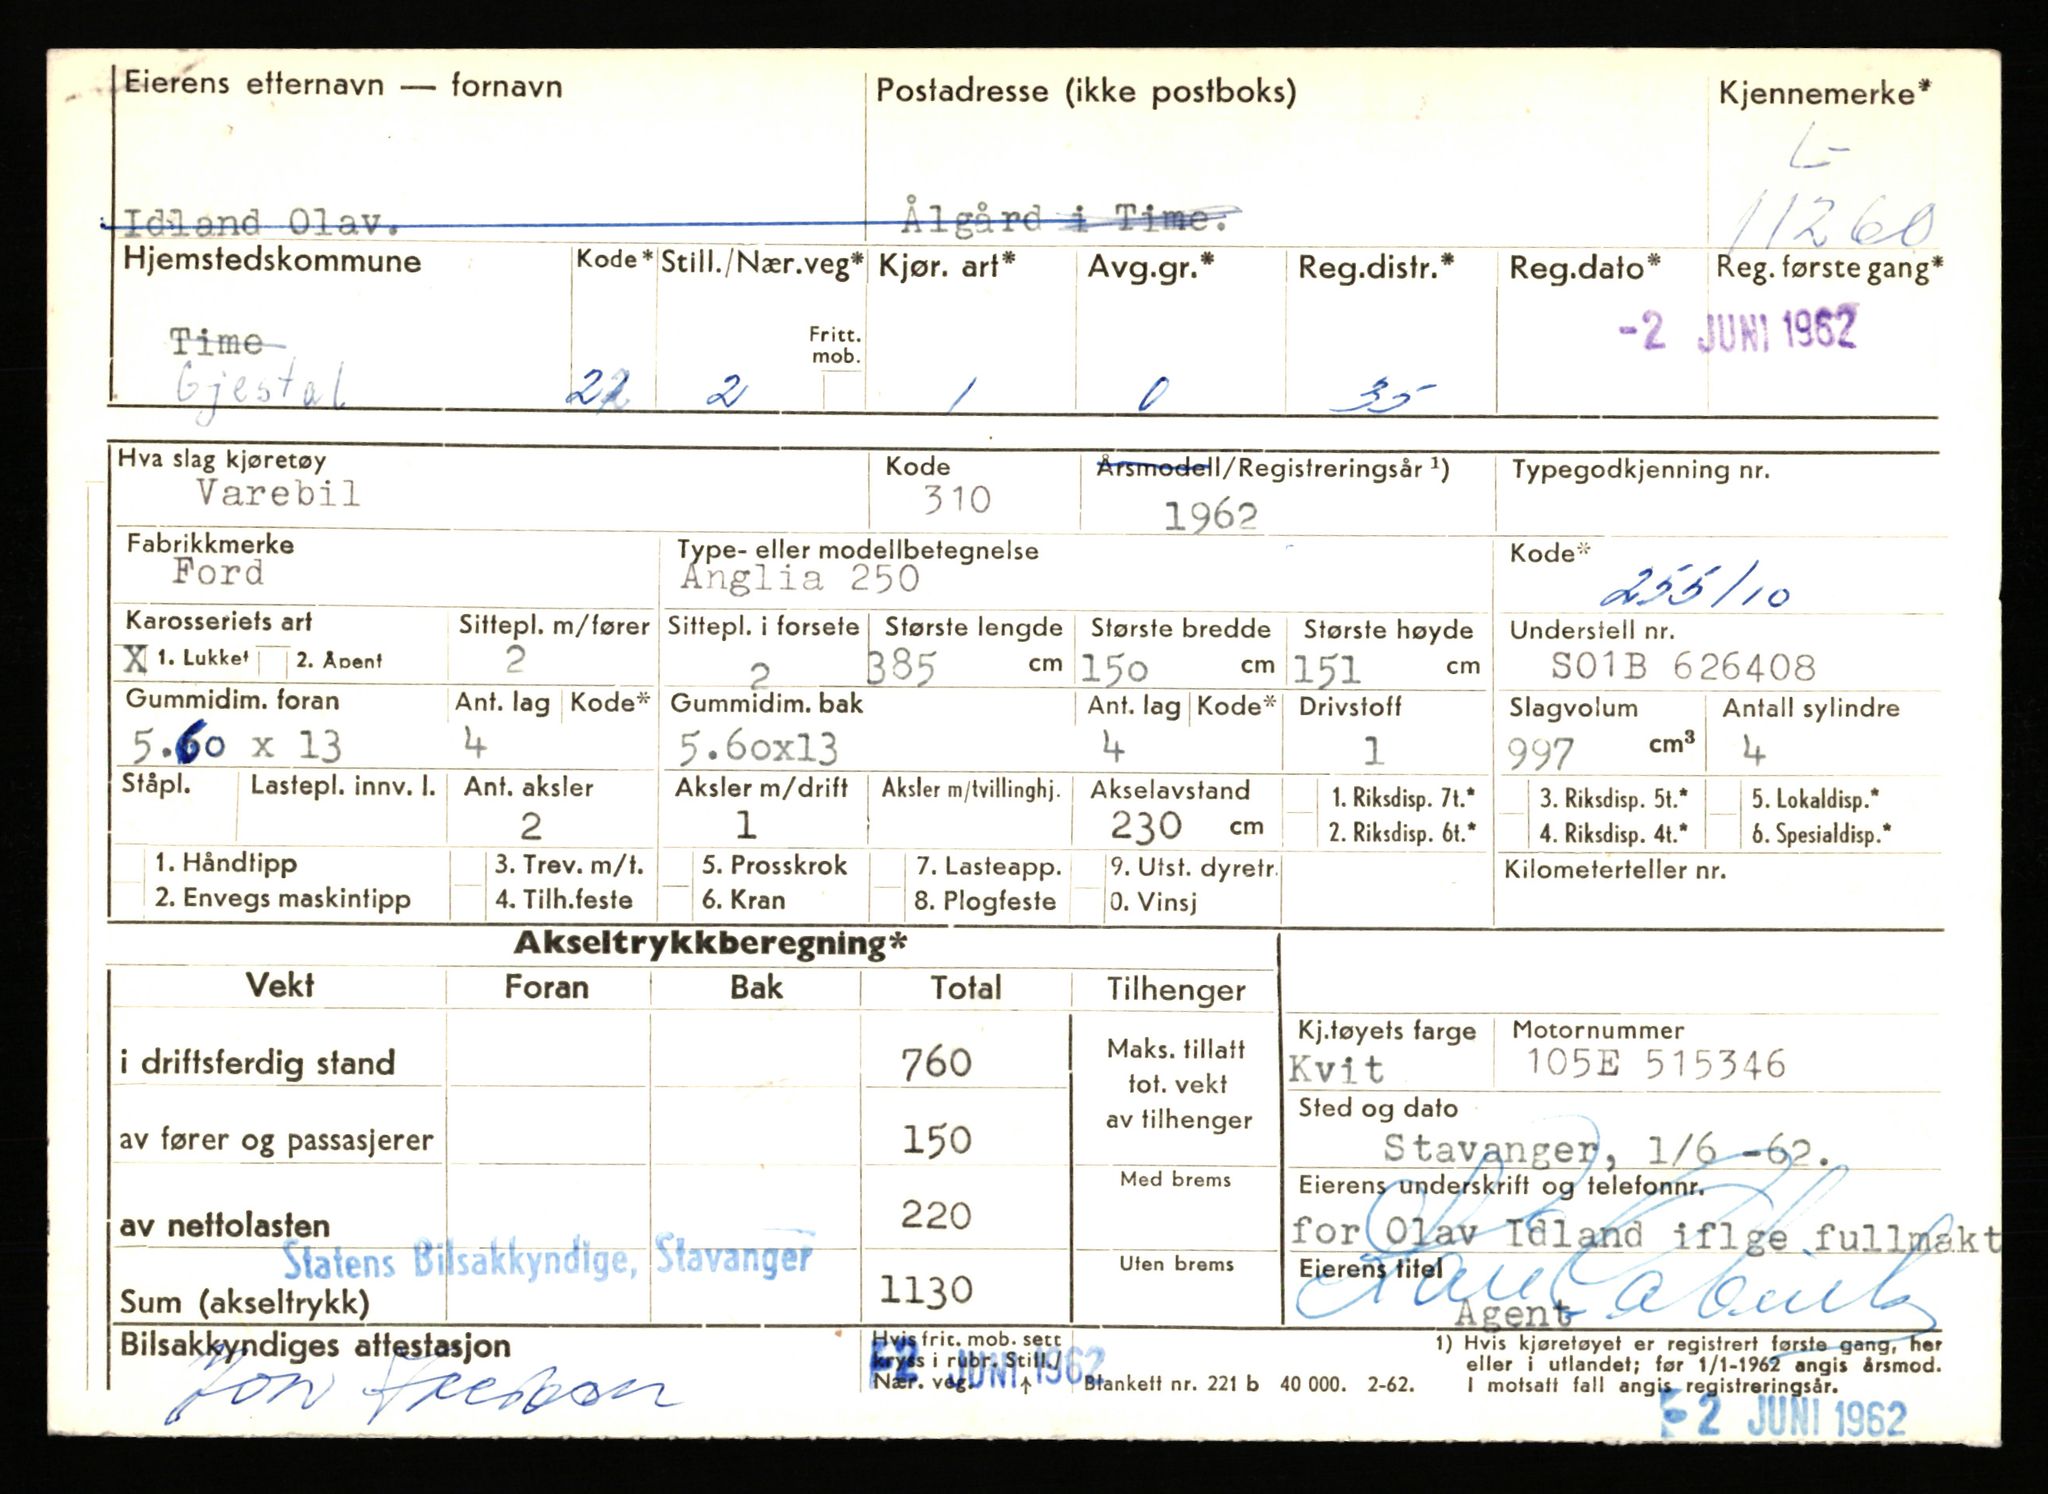 Eierens etternavn — fornavn Postadresse (ikke postboks) Kjennemerke*
L-
Idland Olav. Ålgård i Time. 11260
Hjemstedskommune Kode* Still./Nær.veg* Kjør. art* Avg.gr.* Reg.distr.* Reg.dato* Reg. første gang*
Time Fritt. mob. -2 JUNI 1962
Gjestal 22 2 1 0 35
Hva slag kjøretøy Kode Årsmodell/Registreringsår ¹) Typegodkjenning nr.
Varebil 310 1962
Fabrikkmerke Type- eller modellbetegnelse Kode*
Ford Anglia 250 255/10
Karosseriets art Sittepl. m/fører Sittepl. i forsete Største lengde Største bredde Største høyde Understell nr.
X 1. Lukket 2. Åpent 2 2 385 cm 150 cm 151 cm S01B 626408
Gummidim. foran Ant. lag Kode* Gummidim. bak Ant. lag Kode* Drivstoff Slagvolum Antall sylindre
5.60 x 13 4 5.60x13 4 1 997 cm³ 4
Ståpl. Lastepl. innv. l. Ant. aksler Aksler m/drift Aksler m/tvillinghj. Akselavstand 1. Riksdisp. 7t.* 3. Riksdisp. 5t.* 5. Lokaldisp.*
2 1 230 cm 2. Riksdisp. 6t.* 4. Riksdisp. 4t.* 6. Spesialdisp.*
1. Håndtipp 3. Trev. m/t. 5. Prosskrok 7. Lasteapp. 9. Utst. dyretr. Kilometerteller nr.
2. Envegs maskintipp 4. Tilh.feste 6. Kran 8. Plogfeste 0. Vinsj
Akseltrykkberegning*
Vekt Foran Bak Total Tilhenger
Kj.tøyets farge Motornummer
i driftsferdig stand 760 Maks. tillatt tot. vekt av tilhenger Kvit 105E 515346
Sted og dato
av fører og passasjerer 150 Stavanger, 1/6 -62.
Med brems Eierens underskrift og telefonnr.
av nettolasten 220 for Olav Idland iflge fullmakt
Statens Bilsakkyndige, Stavanger
Uten brems Eierens titel
Sum (akseltrykk) 1130 Agent
Bilsakkyndiges attestasjon Hvis frit. mob. sett kryss i rubr. Still./ Nær. veg. ↑
-2 JUNI 1962
Blankett nr. 221 b 40 000. 2-62.
1) Hvis kjøretøyet er registrert første gang, her
eller i utlandet; før 1/1-1962 angis årsmod.
I motsatt fall angis registreringsår.
-2 JUNI 1962